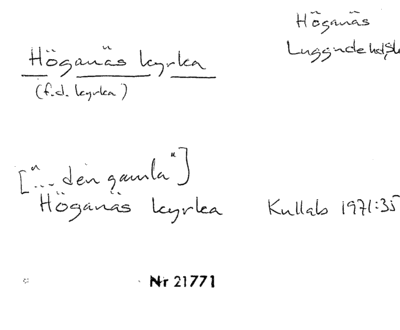 Höganäs
Höganäs kyrka
Luggude hd, Sk
(f.d. kyrka)
["... den gamla"]
Höganäs kyrka Kullab 1971:35
Nr 21771